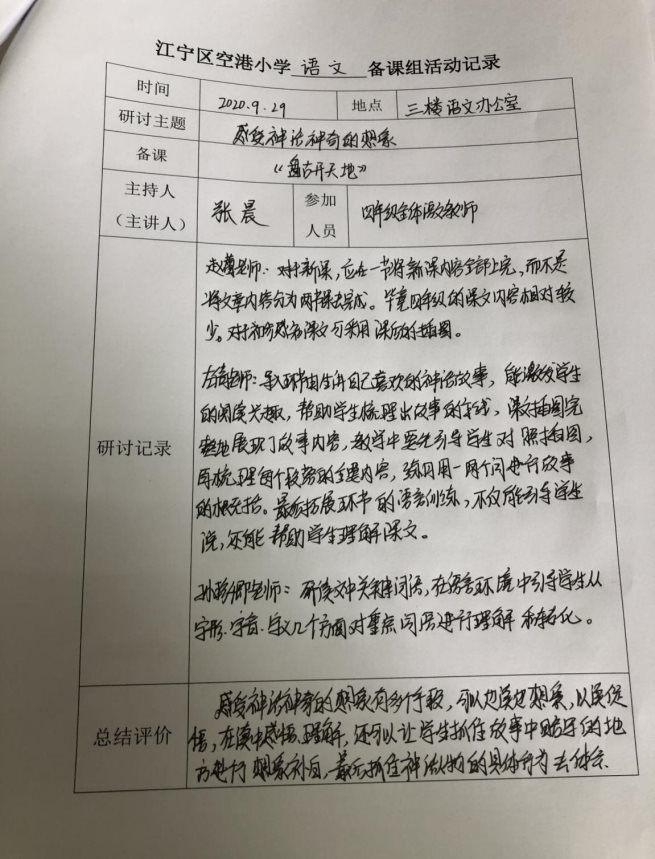 江宁区空港小学 语文 备课组活动记录
时间 2020.9.29 地点 三楼语文办公室
研讨主题 感受神话神奇的想象
备课 《盘古开天地》
主持人（主讲人） 张晨 参加人员 四年级全体语文教师
研讨记录
老师：对于新课，应在一节将新课内容全部上完，而不是
将文章内容分为两节课去完成。毕竟四年级的课文内容相对较
少。对于初步感知课文可采用课后的插图。
老师：导入环节由生讲自己喜欢的神话故事，能激发学生
的阅读兴趣，帮助学生梳理出故事的主线，课文插图完
整地展现了故事内容，教学中要先引导学生对照插图，
再梳理每个段落的主要内容，练习用一两个词进行故事
的概括。最后拓展环节的语言训练，不仅能引导学生
说，还能帮助学生理解课文。
老师：研读文中关键词语，在语言环境中引导学生从
字形、字音、字义几个方面对重点词语进行理解和内化。
总结评价
感受神话神奇的想象有多个手段，可以边读边想象，以读促
悟，在读中感悟、理解，还可以让学生抓住故事中的地
方进行想象补白，最后抓住神话人物的具体行为去体会